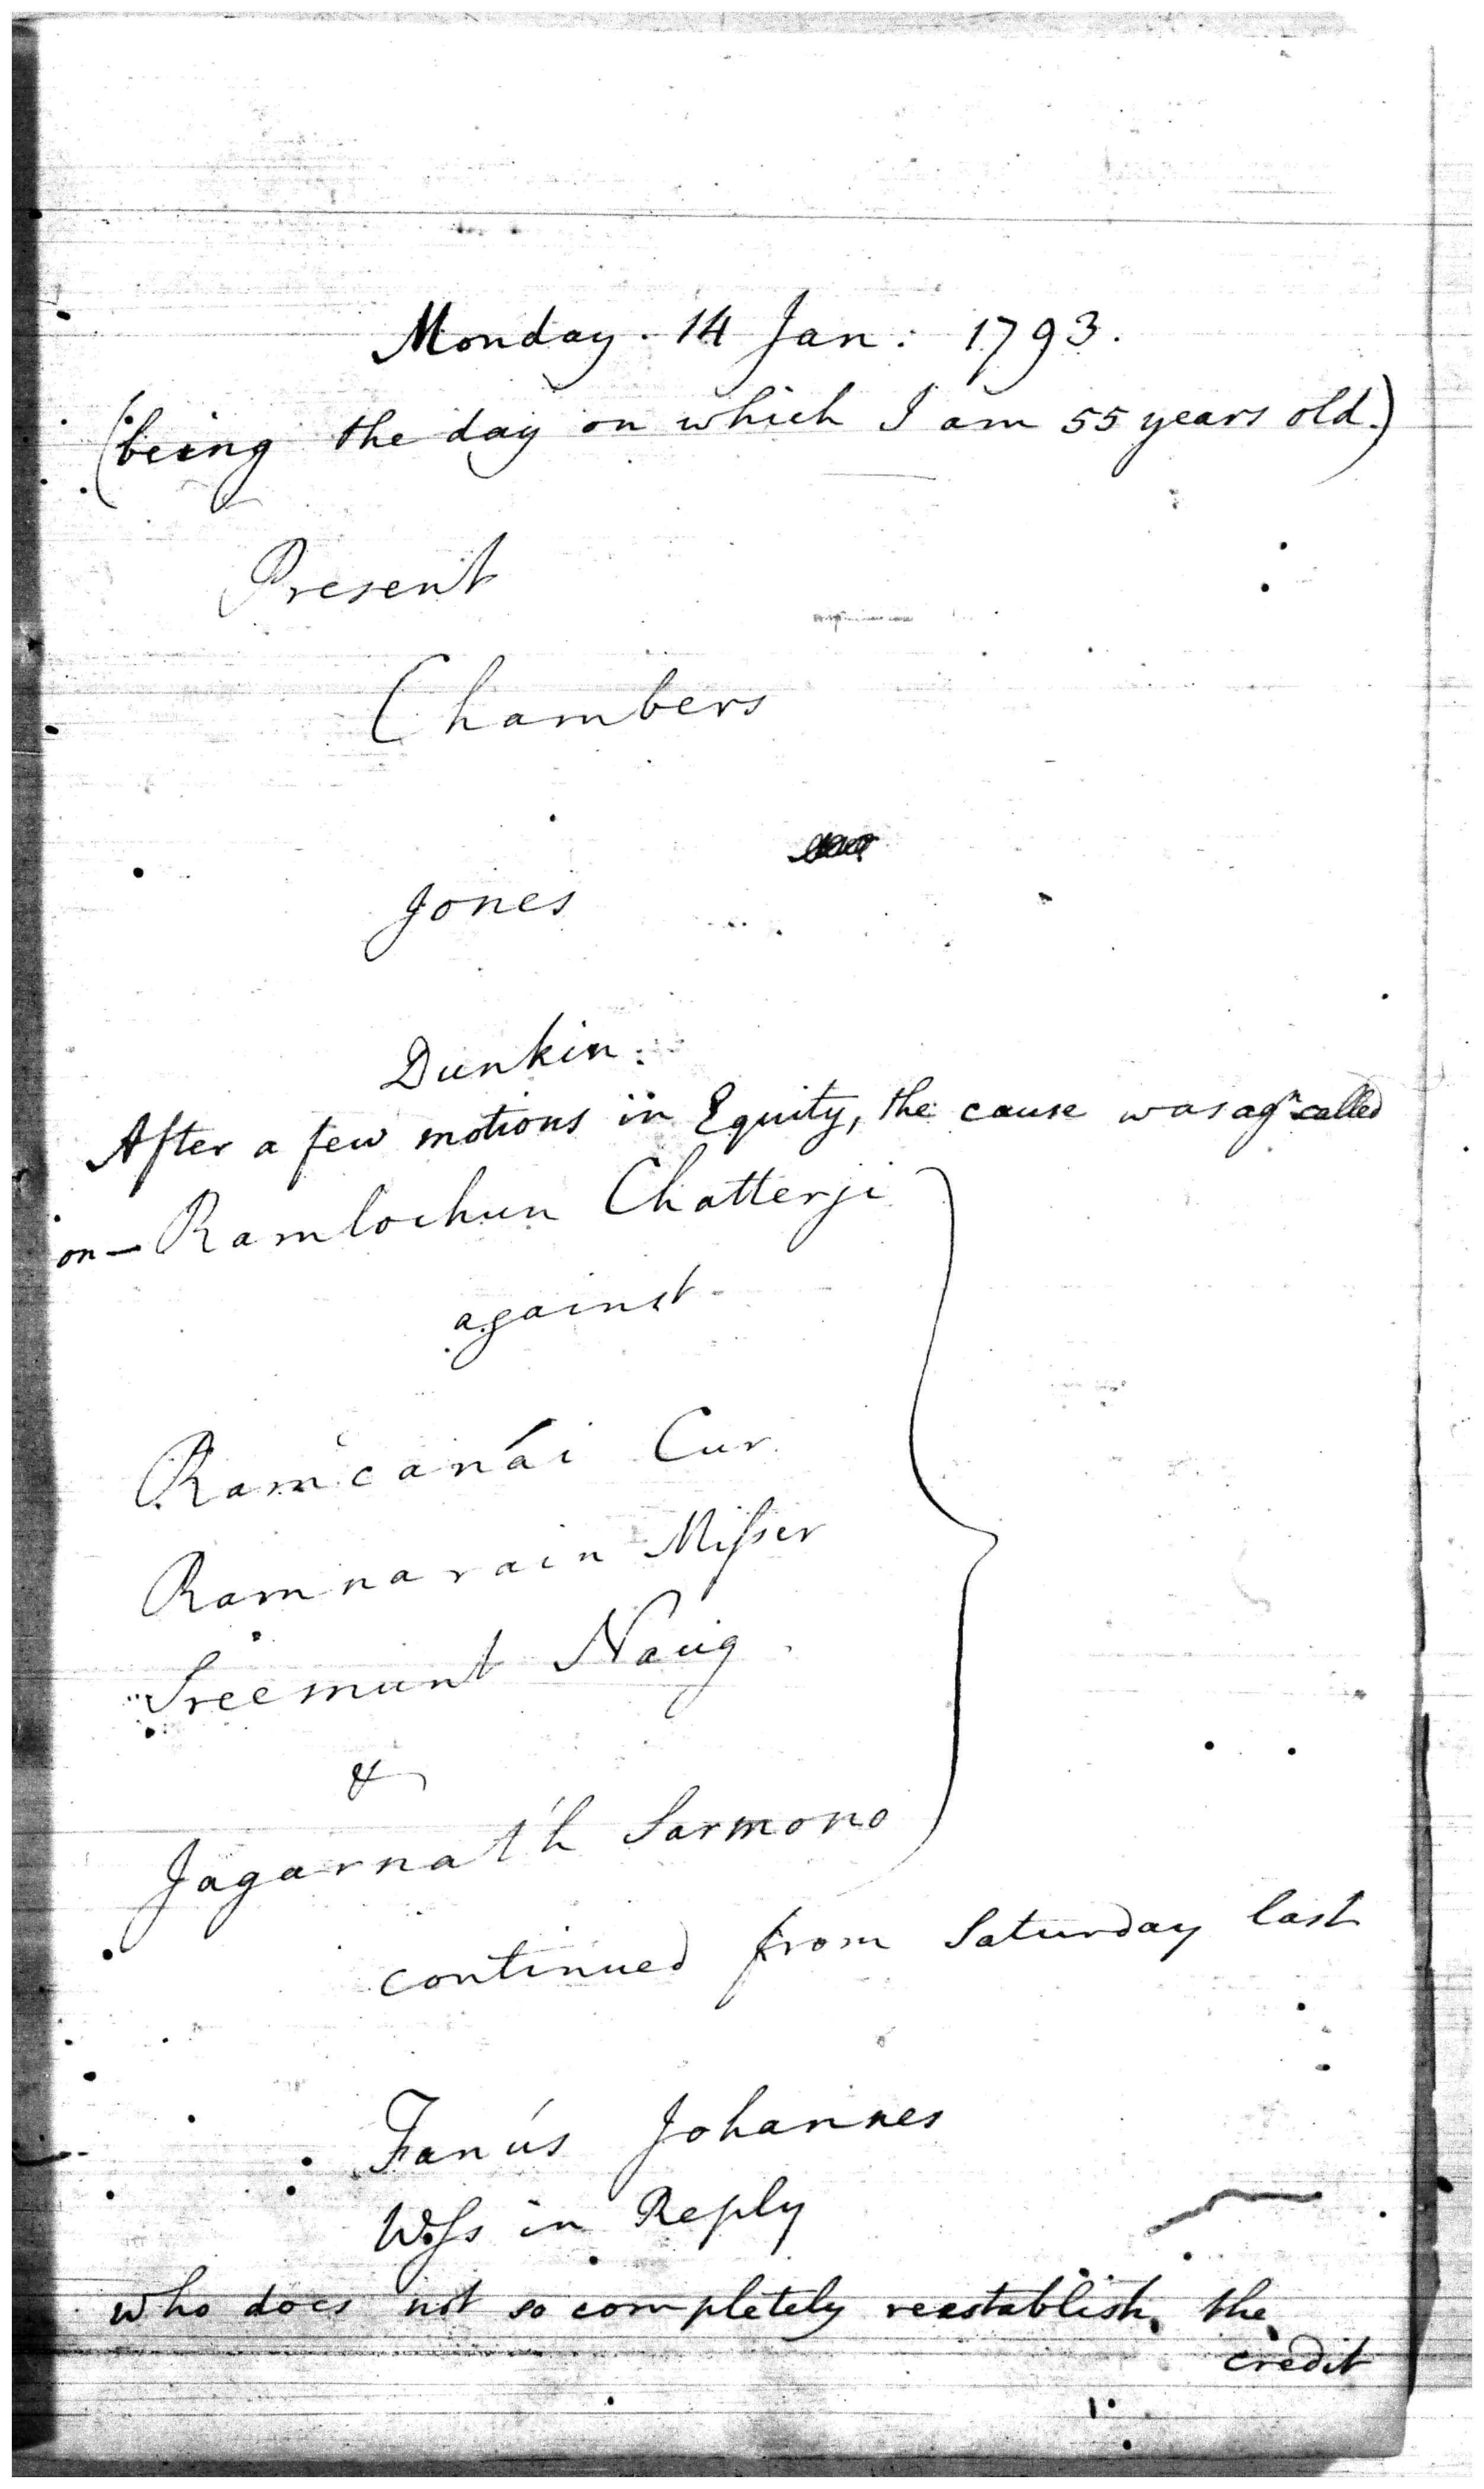 Monday. 14 Jan: 1793.
(being the day on which I am 55 years old.)
Present
Chambers
Jones
Dunkin.
After a few motions in Equity, the cause was agn called
on — Ramlochun Chatterji
against
Ramcanái Cur
Ramnarain Misser
Sreemunt Naug
&
Jagarnat'h Sarmono
continued from Saturday last
Fanús Johannes
Wss in Reply
who does not so completely reestablish the
credit